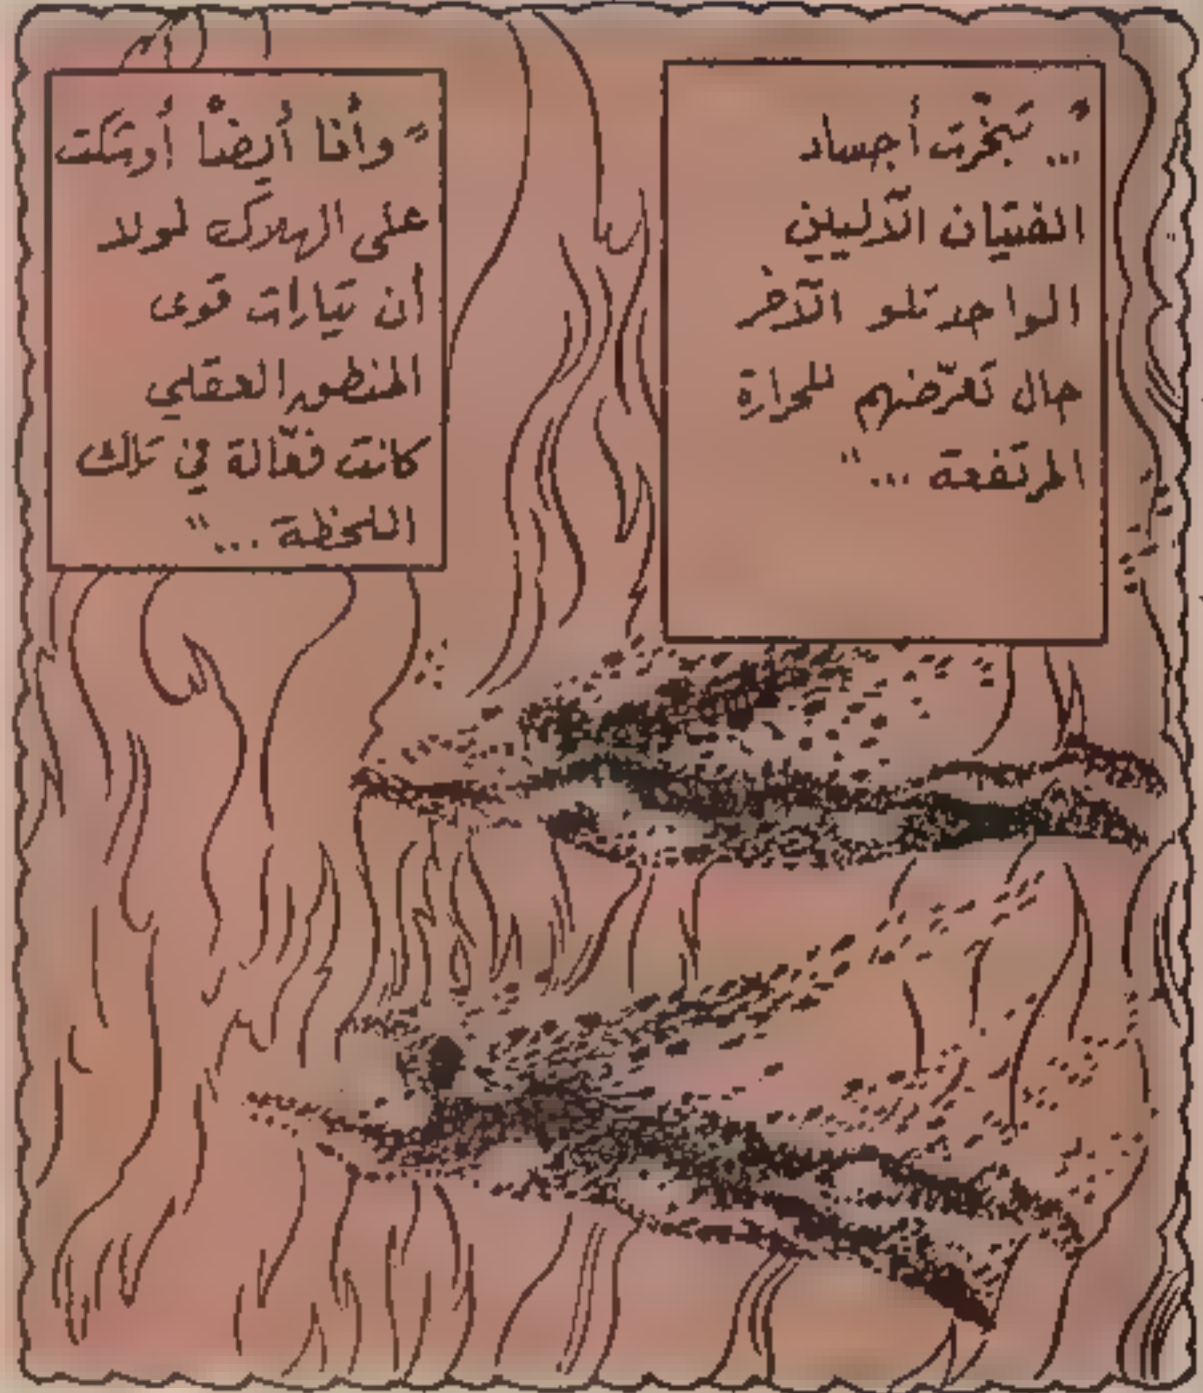 "... تبخّرت أجساد
الفتيان الآليين
الواحد تلو الآخر
حال تعرّضهم للحرارة
المرتفعة ..."
"وأنا أيضاً أوشكت
على الهلاك لولا
أن تيارات قوى
المنظور العقلي
كانت فعّالة في تلك
اللحظة ..."